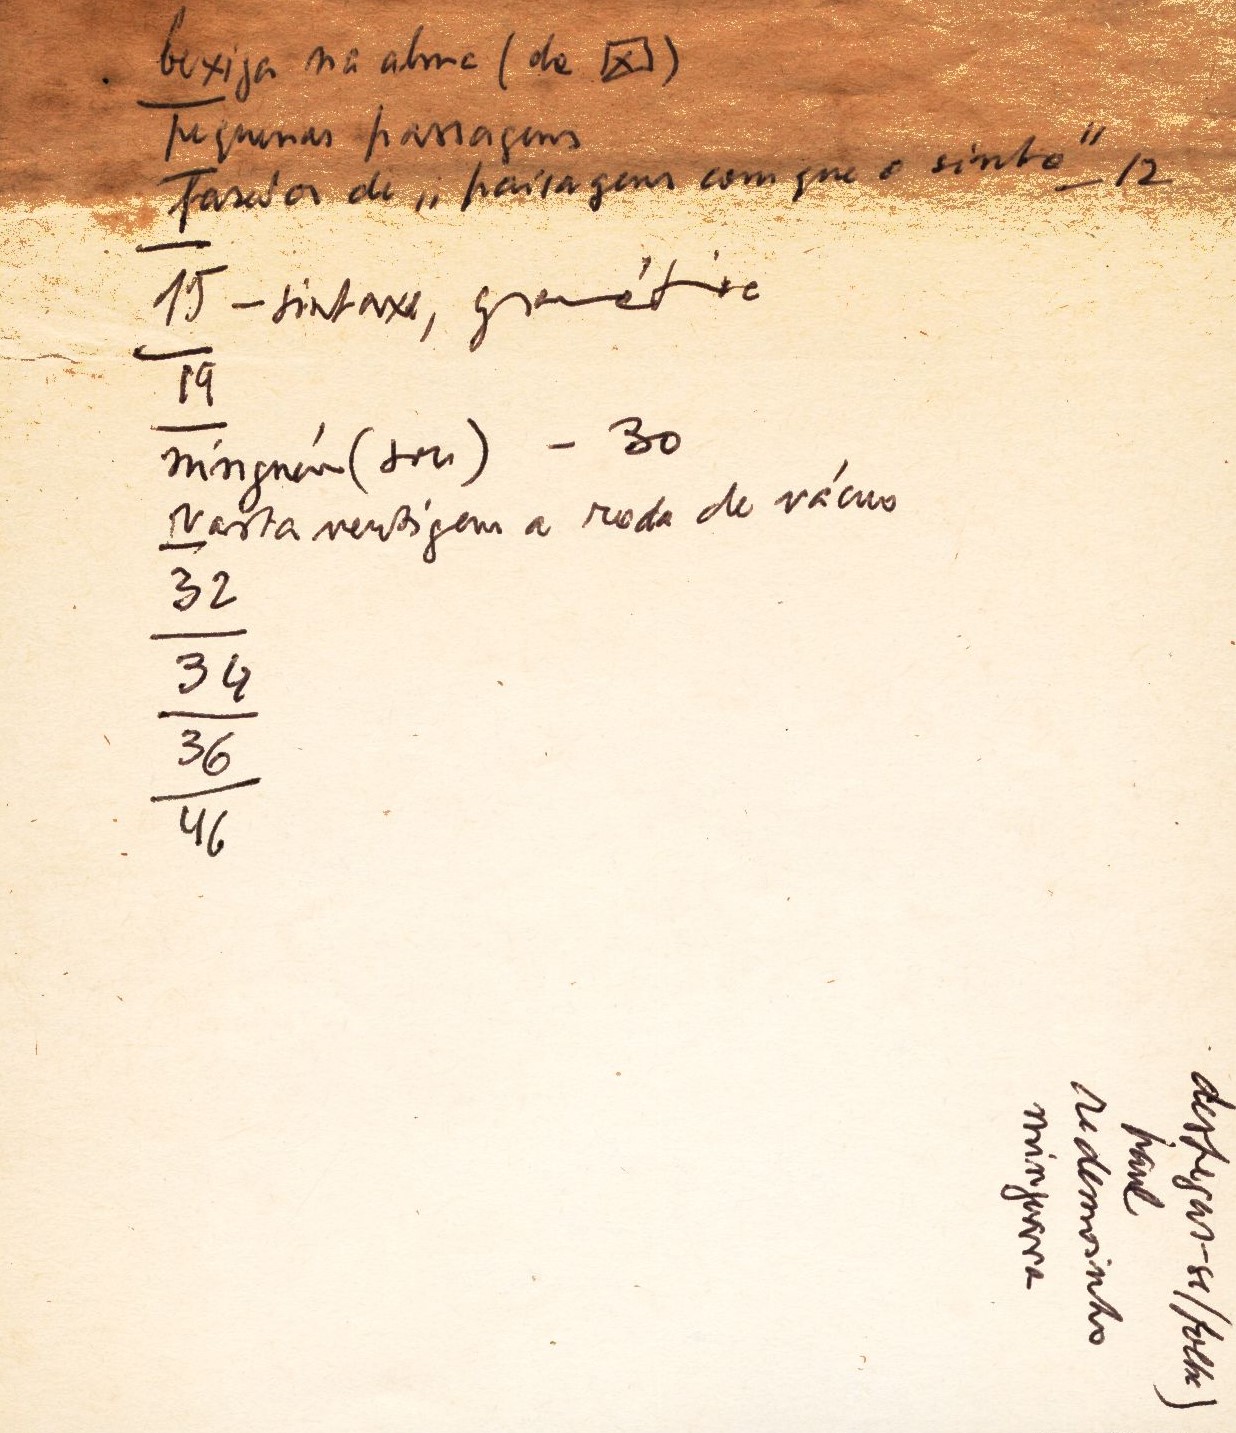 bexiga na alma (de [x])
pequenas passagens
Fazedor de „paisagens com que o sinto” – 12
15 – sintaxe, gramática
19
ninguém (sou) – 30
Vasta vertigem a roda de vácuo
32
34
36
46
despegar-se (folha)
paul
redemoinho
minguava